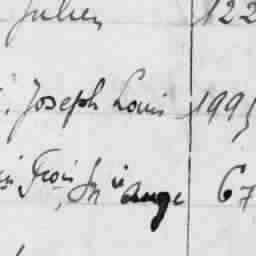 Julien 122
Joseph Louis 1995
Frois Jn Ange 67